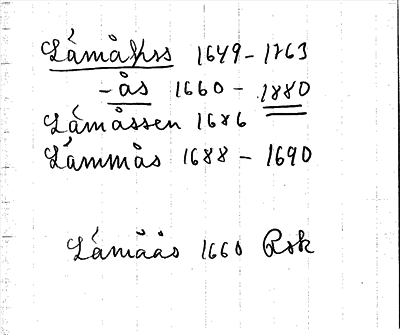 Lámåhss 1649-1763
-ås 1660- 1880
Lámåssen 1686
Lámmås 1688 - 1690
Lámåås 1660 Rsk